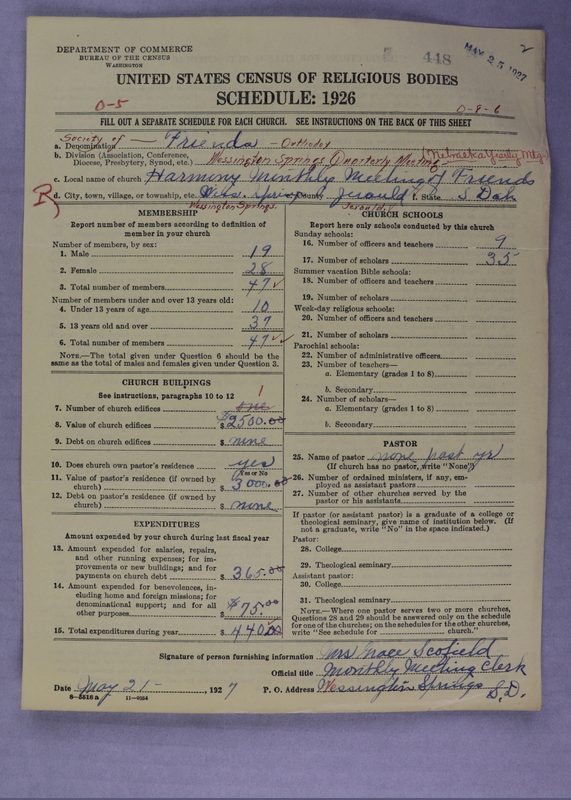 DEPARTMENT OF COMMERCE
BUREAU OF THE CENSUS
WASHINGTON
448
MAY 25 1927
2
UNITED STATES CENSUS OF RELIGIOUS BODIES
SCHEDULE: 1926
0-5
0-9-6
FILL OUT A SEPARATE SCHEDULE FOR EACH CHURCH. SEE INSTRUCTIONS ON THE BACK OF THIS SHEET
a. Denomination Society of — Friends - Orthodox
b. Division (Association, Conference, Diocese, Presbytery, Synod, etc.) Wessington Springs Quarterly Meeting (Nebraska Yearly Mtg.)
c. Local name of church Harmony Monthly Meeting of Friends
R) d. City, town, village, or township, etc. Wess. Springs County Jerauld f. State S. Dak
Wessington Springs. Jerauld
MEMBERSHIP
Report number of members according to definition of member in your church
Number of members, by sex:
1. Male 19
2. Female 28
3. Total number of members 47 ✓
Number of members under and over 13 years old:
4. Under 13 years of age 10
5. 13 years old and over 37
6. Total number of members 47 ✓✓
NOTE.—The total given under Question 6 should be the same as the total of males and females given under Question 3.
CHURCH BUILDINGS
See instructions, paragraphs 10 to 12
7. Number of church edifices one 1
8. Value of church edifices $ 2500.00
9. Debt on church edifices $ none
10. Does church own pastor's residence yes
Yes or No
11. Value of pastor's residence (if owned by church) $ 3000.00
12. Debt on pastor's residence (if owned by church) $ none
EXPENDITURES
Amount expended by your church during last fiscal year
13. Amount expended for salaries, repairs, and other running expenses; for improvements or new buildings; and for payments on church debt $ 365.00
14. Amount expended for benevolences, including home and foreign missions; for denominational support; and for all other purposes $ 75.00
15. Total expenditures during year $ 440.00
CHURCH SCHOOLS
Report here only schools conducted by this church
Sunday schools:
16. Number of officers and teachers 9
17. Number of scholars 35
Summer vacation Bible schools:
18. Number of officers and teachers
19. Number of scholars
Week-day religious schools:
20. Number of officers and teachers
21. Number of scholars
Parochial schools:
22. Number of administrative officers
23. Number of teachers—
a. Elementary (grades 1 to 8)
b. Secondary
24. Number of scholars—
a. Elementary (grades 1 to 8)
b. Secondary
PASTOR
25. Name of pastor none past yr
(If church has no pastor, write "None")
26. Number of ordained ministers, if any, employed as assistant pastors
27. Number of other churches served by the pastor or his assistants
If pastor (or assistant pastor) is a graduate of a college or theological seminary, give name of institution below. (If not a graduate, write "No" in the space indicated.)
Pastor:
28. College
29. Theological seminary
Assistant pastor:
30. College
31. Theological seminary
NOTE.—Where one pastor serves two or more churches, Questions 28 and 29 should be answered only on the schedule for one of the churches; on the schedules for the other churches, write "See schedule for church."
Signature of person furnishing information Mrs Grace Scofield
Official title Monthly Meeting Clerk
Date May 21 - , 1927 P. O. Address Wessington Springs S.D.
8-5518 a 11-9354